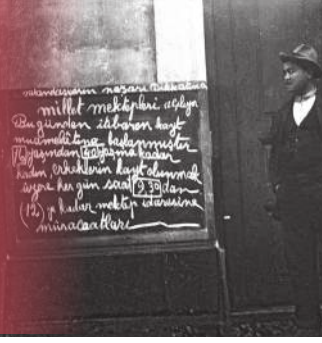 vatandaşların nazarı dikkatine
millet mektepleri açılıyor
Bu günden itibaren kayt
muamelatına başlanmıştır
yaşından 40 yaşına kadar
kadın, erkeklerin kayt olunmak
üzere her gün saat 9,30 dan
(12) ye kadar mektep idaresine
müracaatları